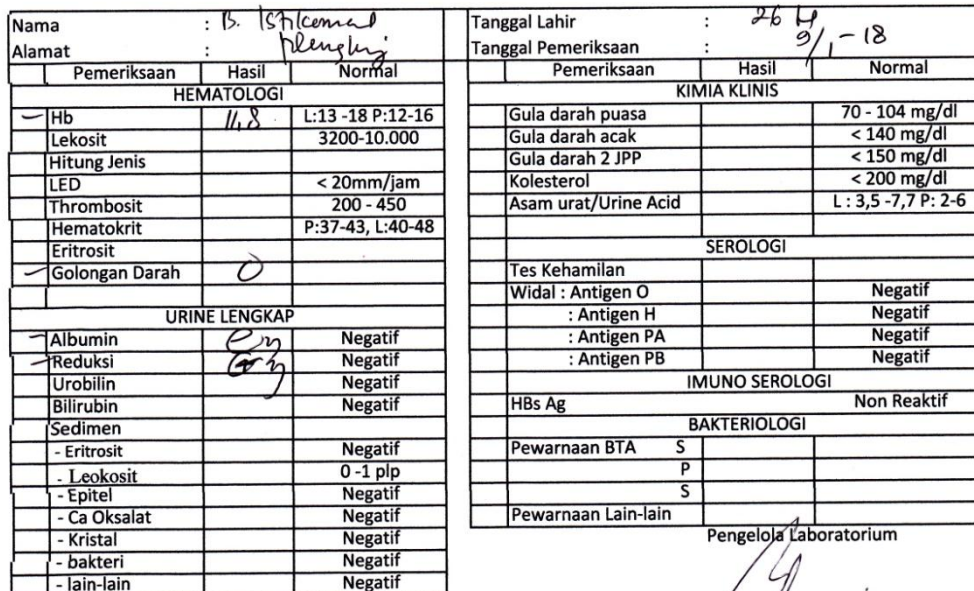 Nama : B. Istikemal
Alamat :
Pemeriksaan Hasil Normal
HEMATOLOGI
Hb 11,8 L:13 -18 P:12-16
Lekosit 3200-10.000
Hitung Jenis
LED < 20mm/jam
Thrombosit 200 - 450
Hematokrit P:37-43, L:40-48
Eritrosit
Golongan Darah O
URINE LENGKAP
Albumin Negatif
Reduksi Negatif
Urobilin Negatif
Bilirubin Negatif
Sedimen
- Eritrosit Negatif
- Leokosit 0 -1 plp
- Epitel Negatif
- Ca Oksalat Negatif
- Kristal Negatif
- bakteri Negatif
- lain-lain Negatif
Tanggal Lahir : 26
Tanggal Pemeriksaan : 9/1-18
Pemeriksaan Hasil Normal
KIMIA KLINIS
Gula darah puasa 70 - 104 mg/dl
Gula darah acak < 140 mg/dl
Gula darah 2 JPP < 150 mg/dl
Kolesterol < 200 mg/dl
Asam urat/Urine Acid L : 3,5 -7,7 P: 2-6
SEROLOGI
Tes Kehamilan
Widal : Antigen O Negatif
: Antigen H Negatif
: Antigen PA Negatif
: Antigen PB Negatif
IMUNO SEROLOGI
HBs Ag Non Reaktif
BAKTERIOLOGI
Pewarnaan BTA S
P
S
Pewarnaan Lain-lain
Pengelola Laboratorium